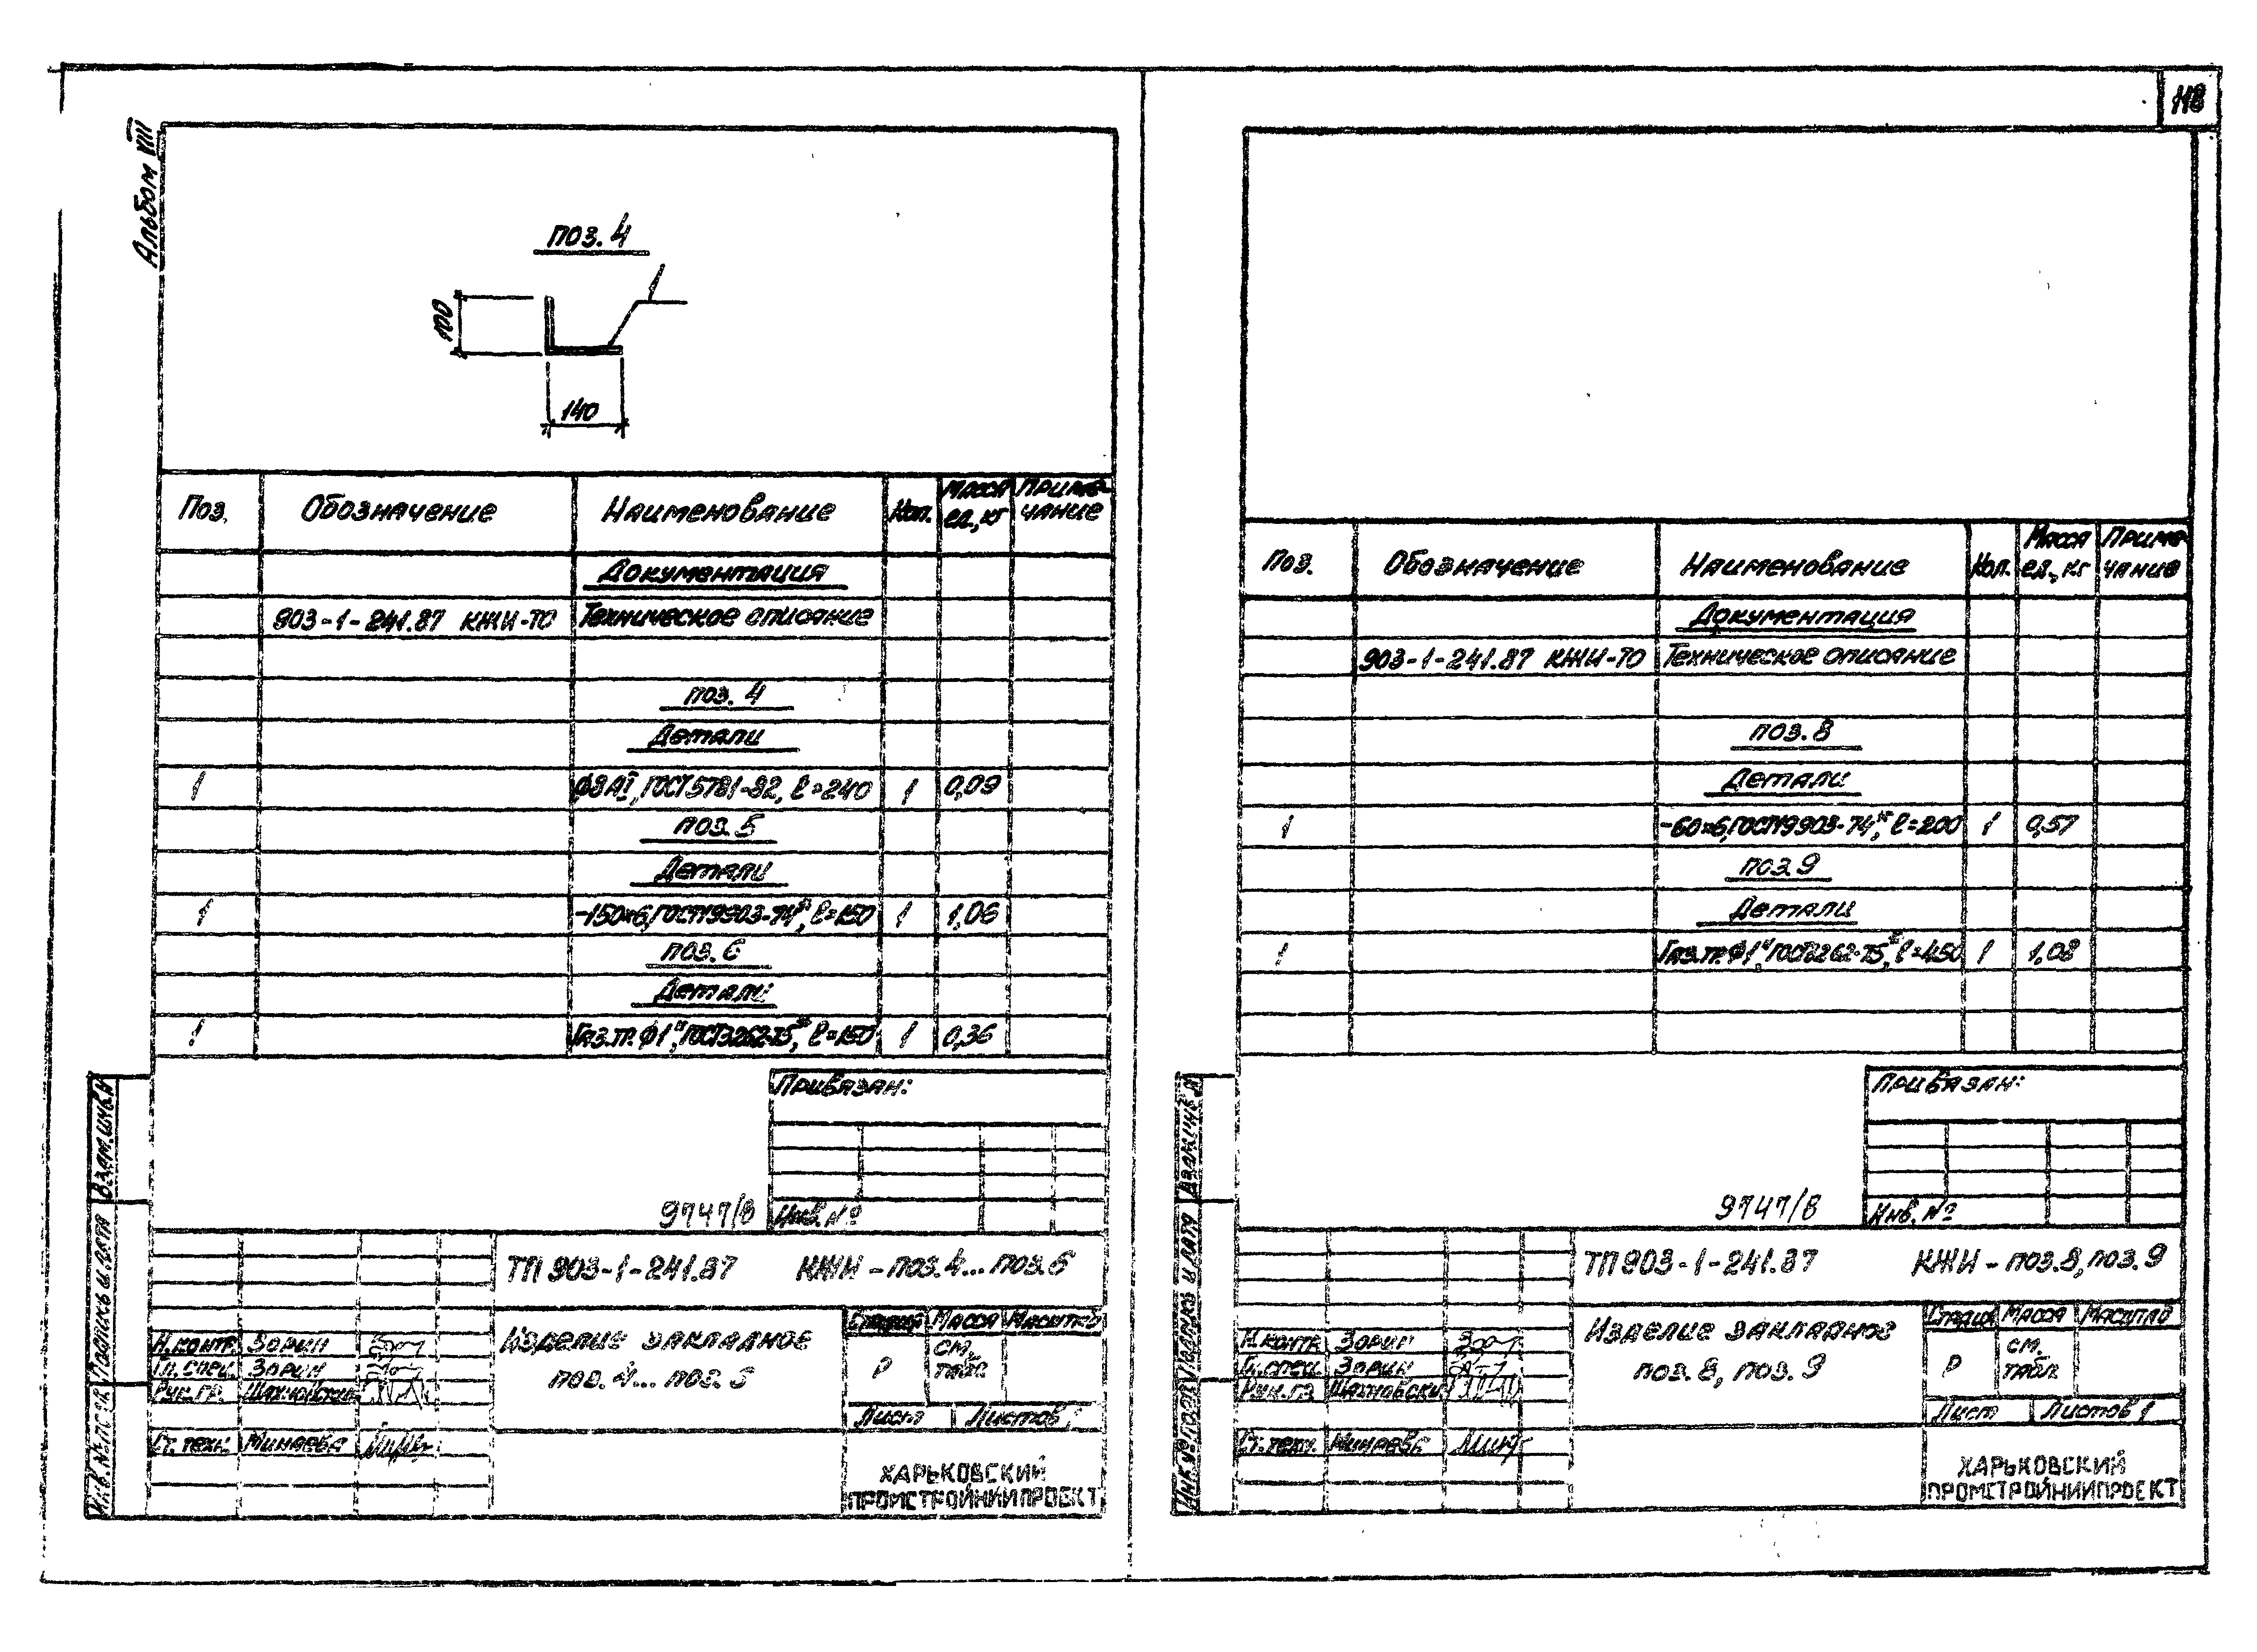 118
Альбом VIII
поз. 4
100
140
Поз. Обозначение Наименование Кол. Масса ед., кг Приме-чание
Документация
903-1-241.87 КЖИ-ТО Техническое описание
поз. 4
Детали
1 ф8 АI, ГОСТ 5781-82, ℓ=240 1 0,09
поз. 5
Детали
1 -150×6, ГОСТ 19903-74*, ℓ=150 1 1,06
поз. 6
Детали
1 Газ.тр. ф1", ГОСТ 3262-75*, ℓ=150 1 0,36
Привязан:
9747/8 Инв. №
ТП 903-1-241.87 КЖИ - поз. 4... поз. 6
Изделие закладное
поз. 4... поз. 6
Стадия Масса Масштаб
Р см. табл.
Лист Листов 1
Н. контр. Зорин
Гл. спец. Зорин
Рук. гр. Шахновский
Ст. техн. Минаева
ХАРЬКОВСКИЙ
ПРОМСТРОЙНИИПРОЕКТ
Взам. инв. №
Подпись и дата
Инв. № подл.
Поз. Обозначение Наименование Кол. Масса ед., кг Приме-чание
Документация
903-1-241.87 КЖИ-ТО Техническое описание
поз. 8
Детали
1 -60×6, ГОСТ 19903-74*, ℓ=200 1 0,57
поз. 9
Детали
1 Газ.тр. ф1", ГОСТ 3262-75*, ℓ=450 1 1,08
Привязан:
9747/8 Инв. №
ТП 903-1-241.87 КЖИ - поз. 8, поз. 9
Изделие закладное
поз. 8, поз. 9
Стадия Масса Масштаб
Р см. табл.
Лист Листов 1
Н. контр. Зорин
Гл. спец. Зорин
Рук. гр. Шахновский
Ст. техн. Минаева
ХАРЬКОВСКИЙ
ПРОМСТРОЙНИИПРОЕКТ
Взам. инв. №
Подпись и дата
Инв. № подл.